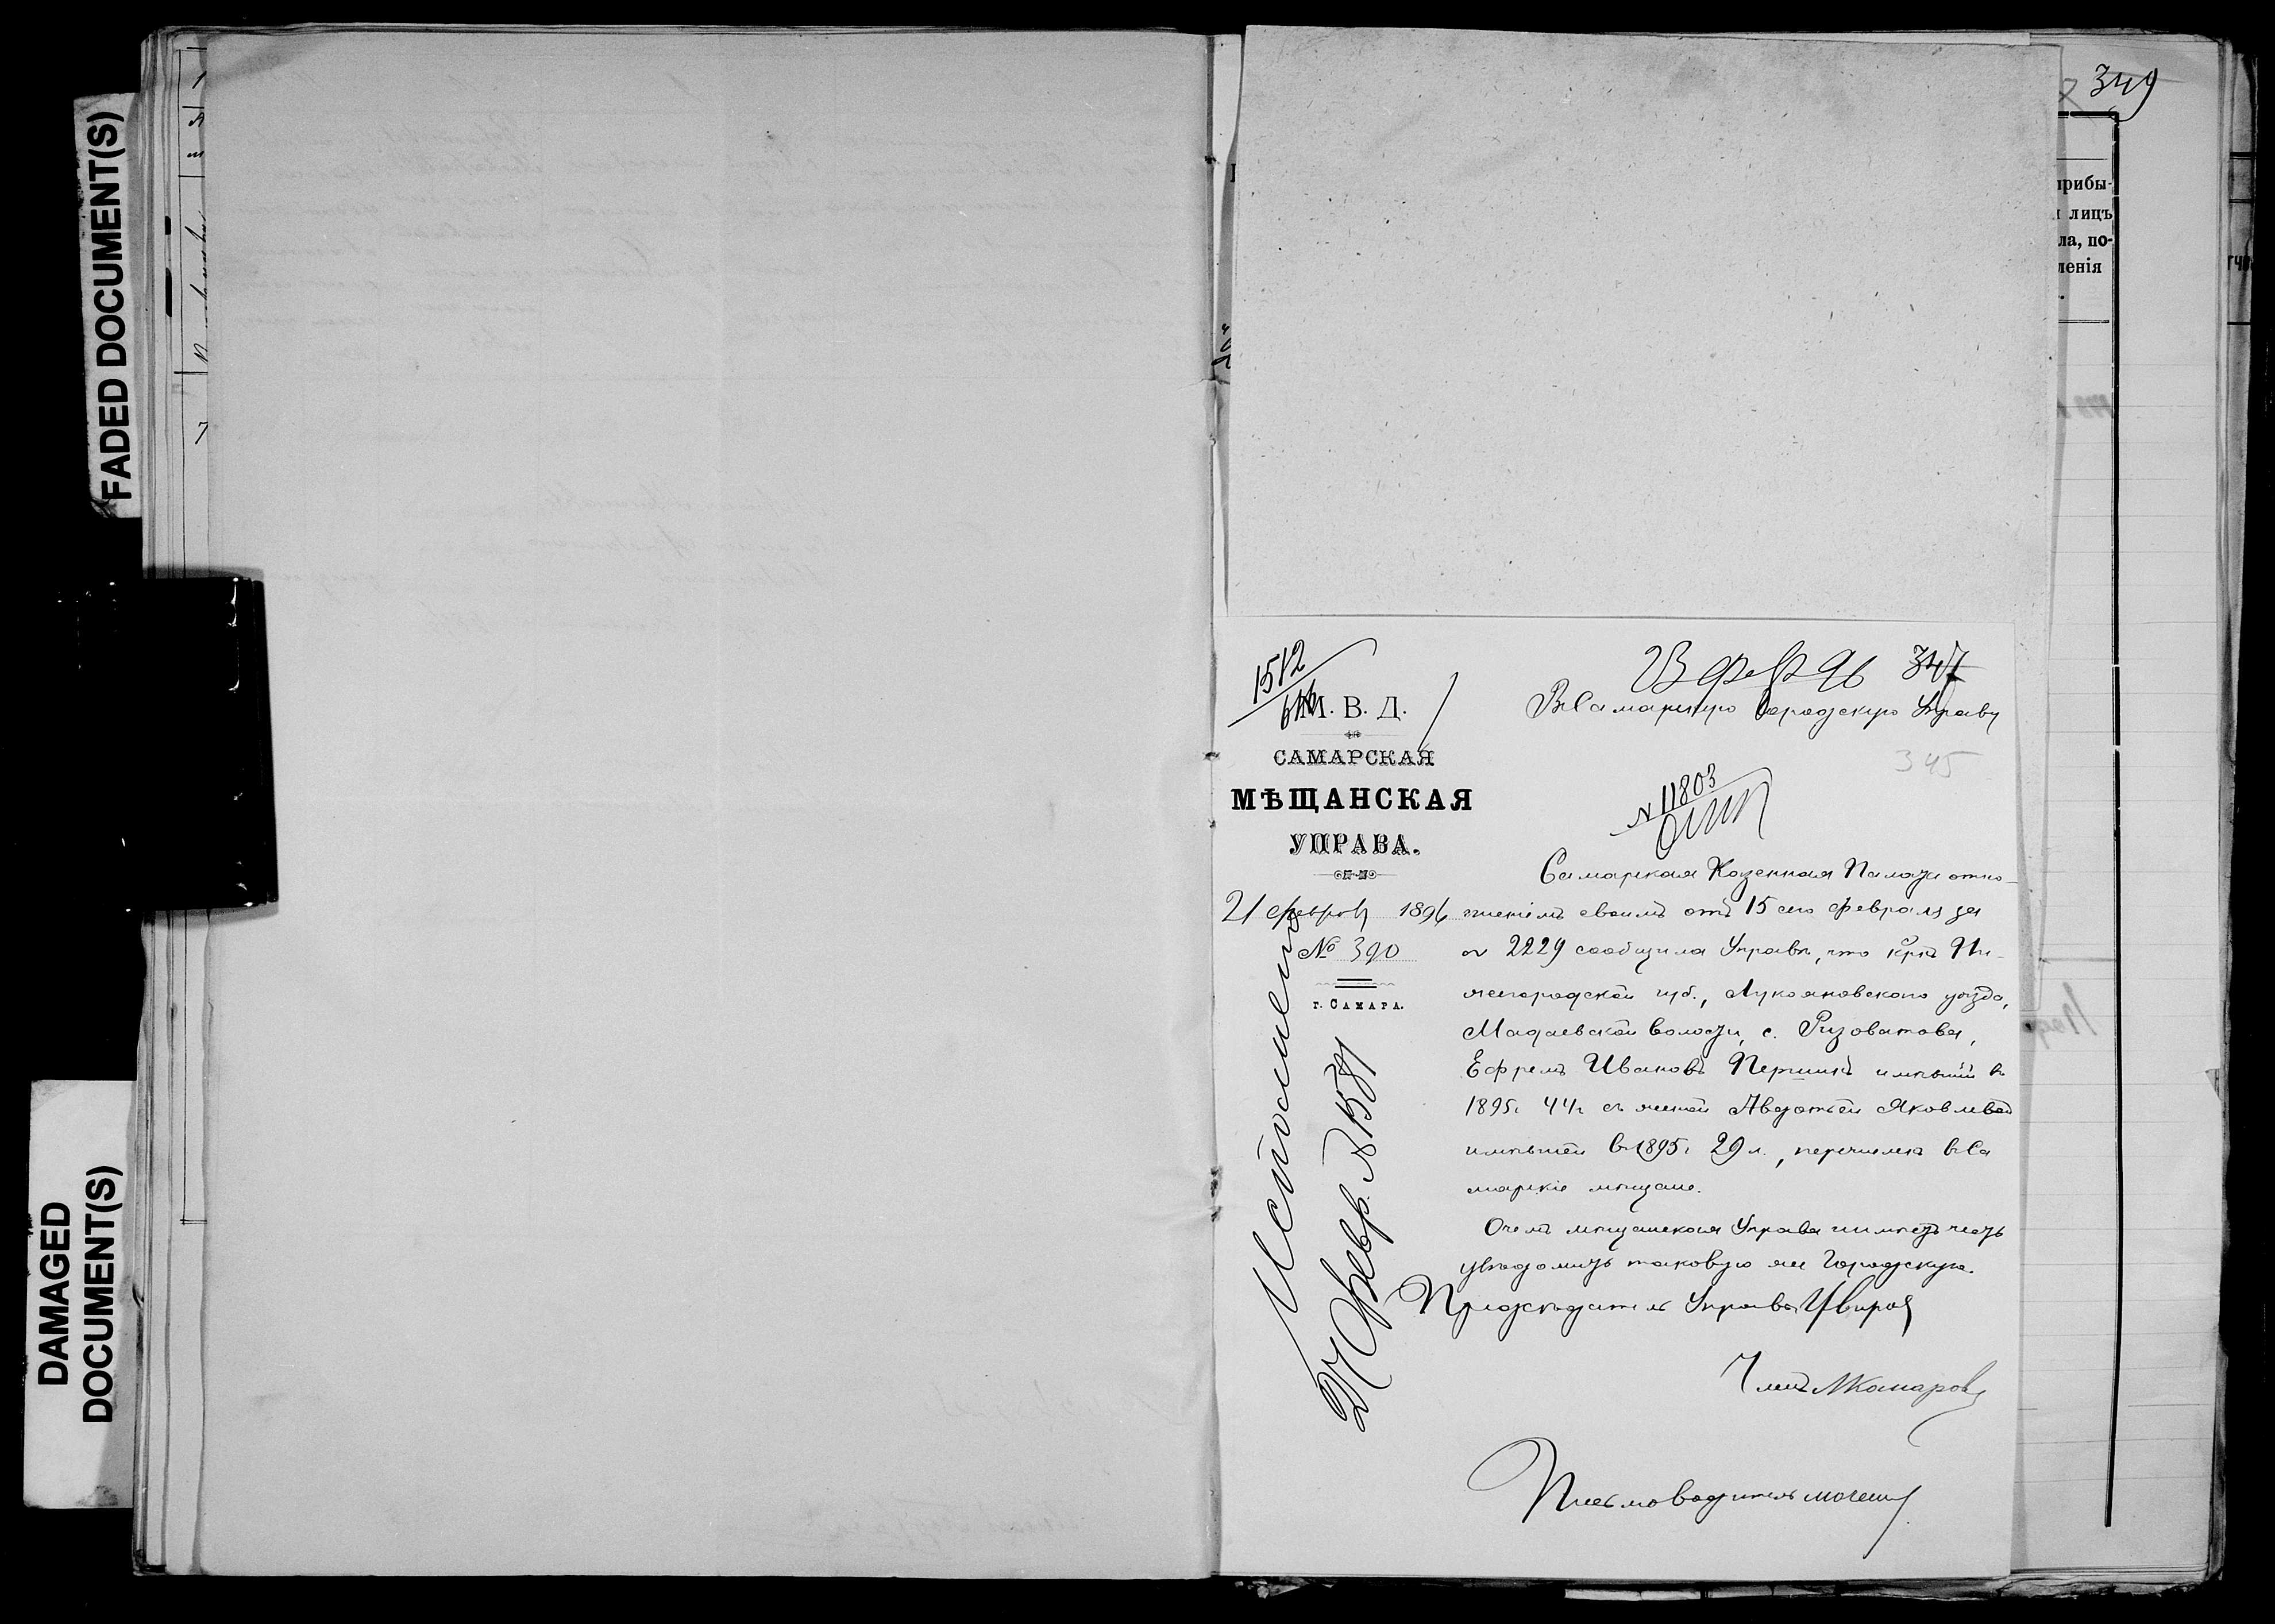 FADED DOCUMENT(S)
DAMAGED
DOCUMENT(S)
349
прибы-
лицъ
ла, по-
ленія
1512
М. В. Д.
САМАРСКАЯ
МѢЩАНСКАЯ
УПРАВА.
21 февраля 1896
№ 390
г. САМАРА.
23 фев 96 347
Въ Самарскую Городскую Управу
345
№ 11803
Самарская Казенная Палата отно-
шеніемъ своимъ отъ 15 сего февраля за
№ 2229 сообщила Управѣ, что кр. Ни-
жегородской губ., Лукояновскаго уѣзда,
Мадаевской волости, с. Ризоватова,
Ефремъ Ивановъ Першинъ имѣвшій въ
1895г 44г съ женой Авдотьей Яковлевой
имѣвшей въ 1895г 29 л., перечисленъ въ Са
марскіе мѣщане.
О чемъ мѣщанская Управа имѣетъ честь
увѣдомить таковую же Городскую.
Предсѣдатель Управы
Членъ
Письмоводитель
Исполнено
27 Февр. № 1581